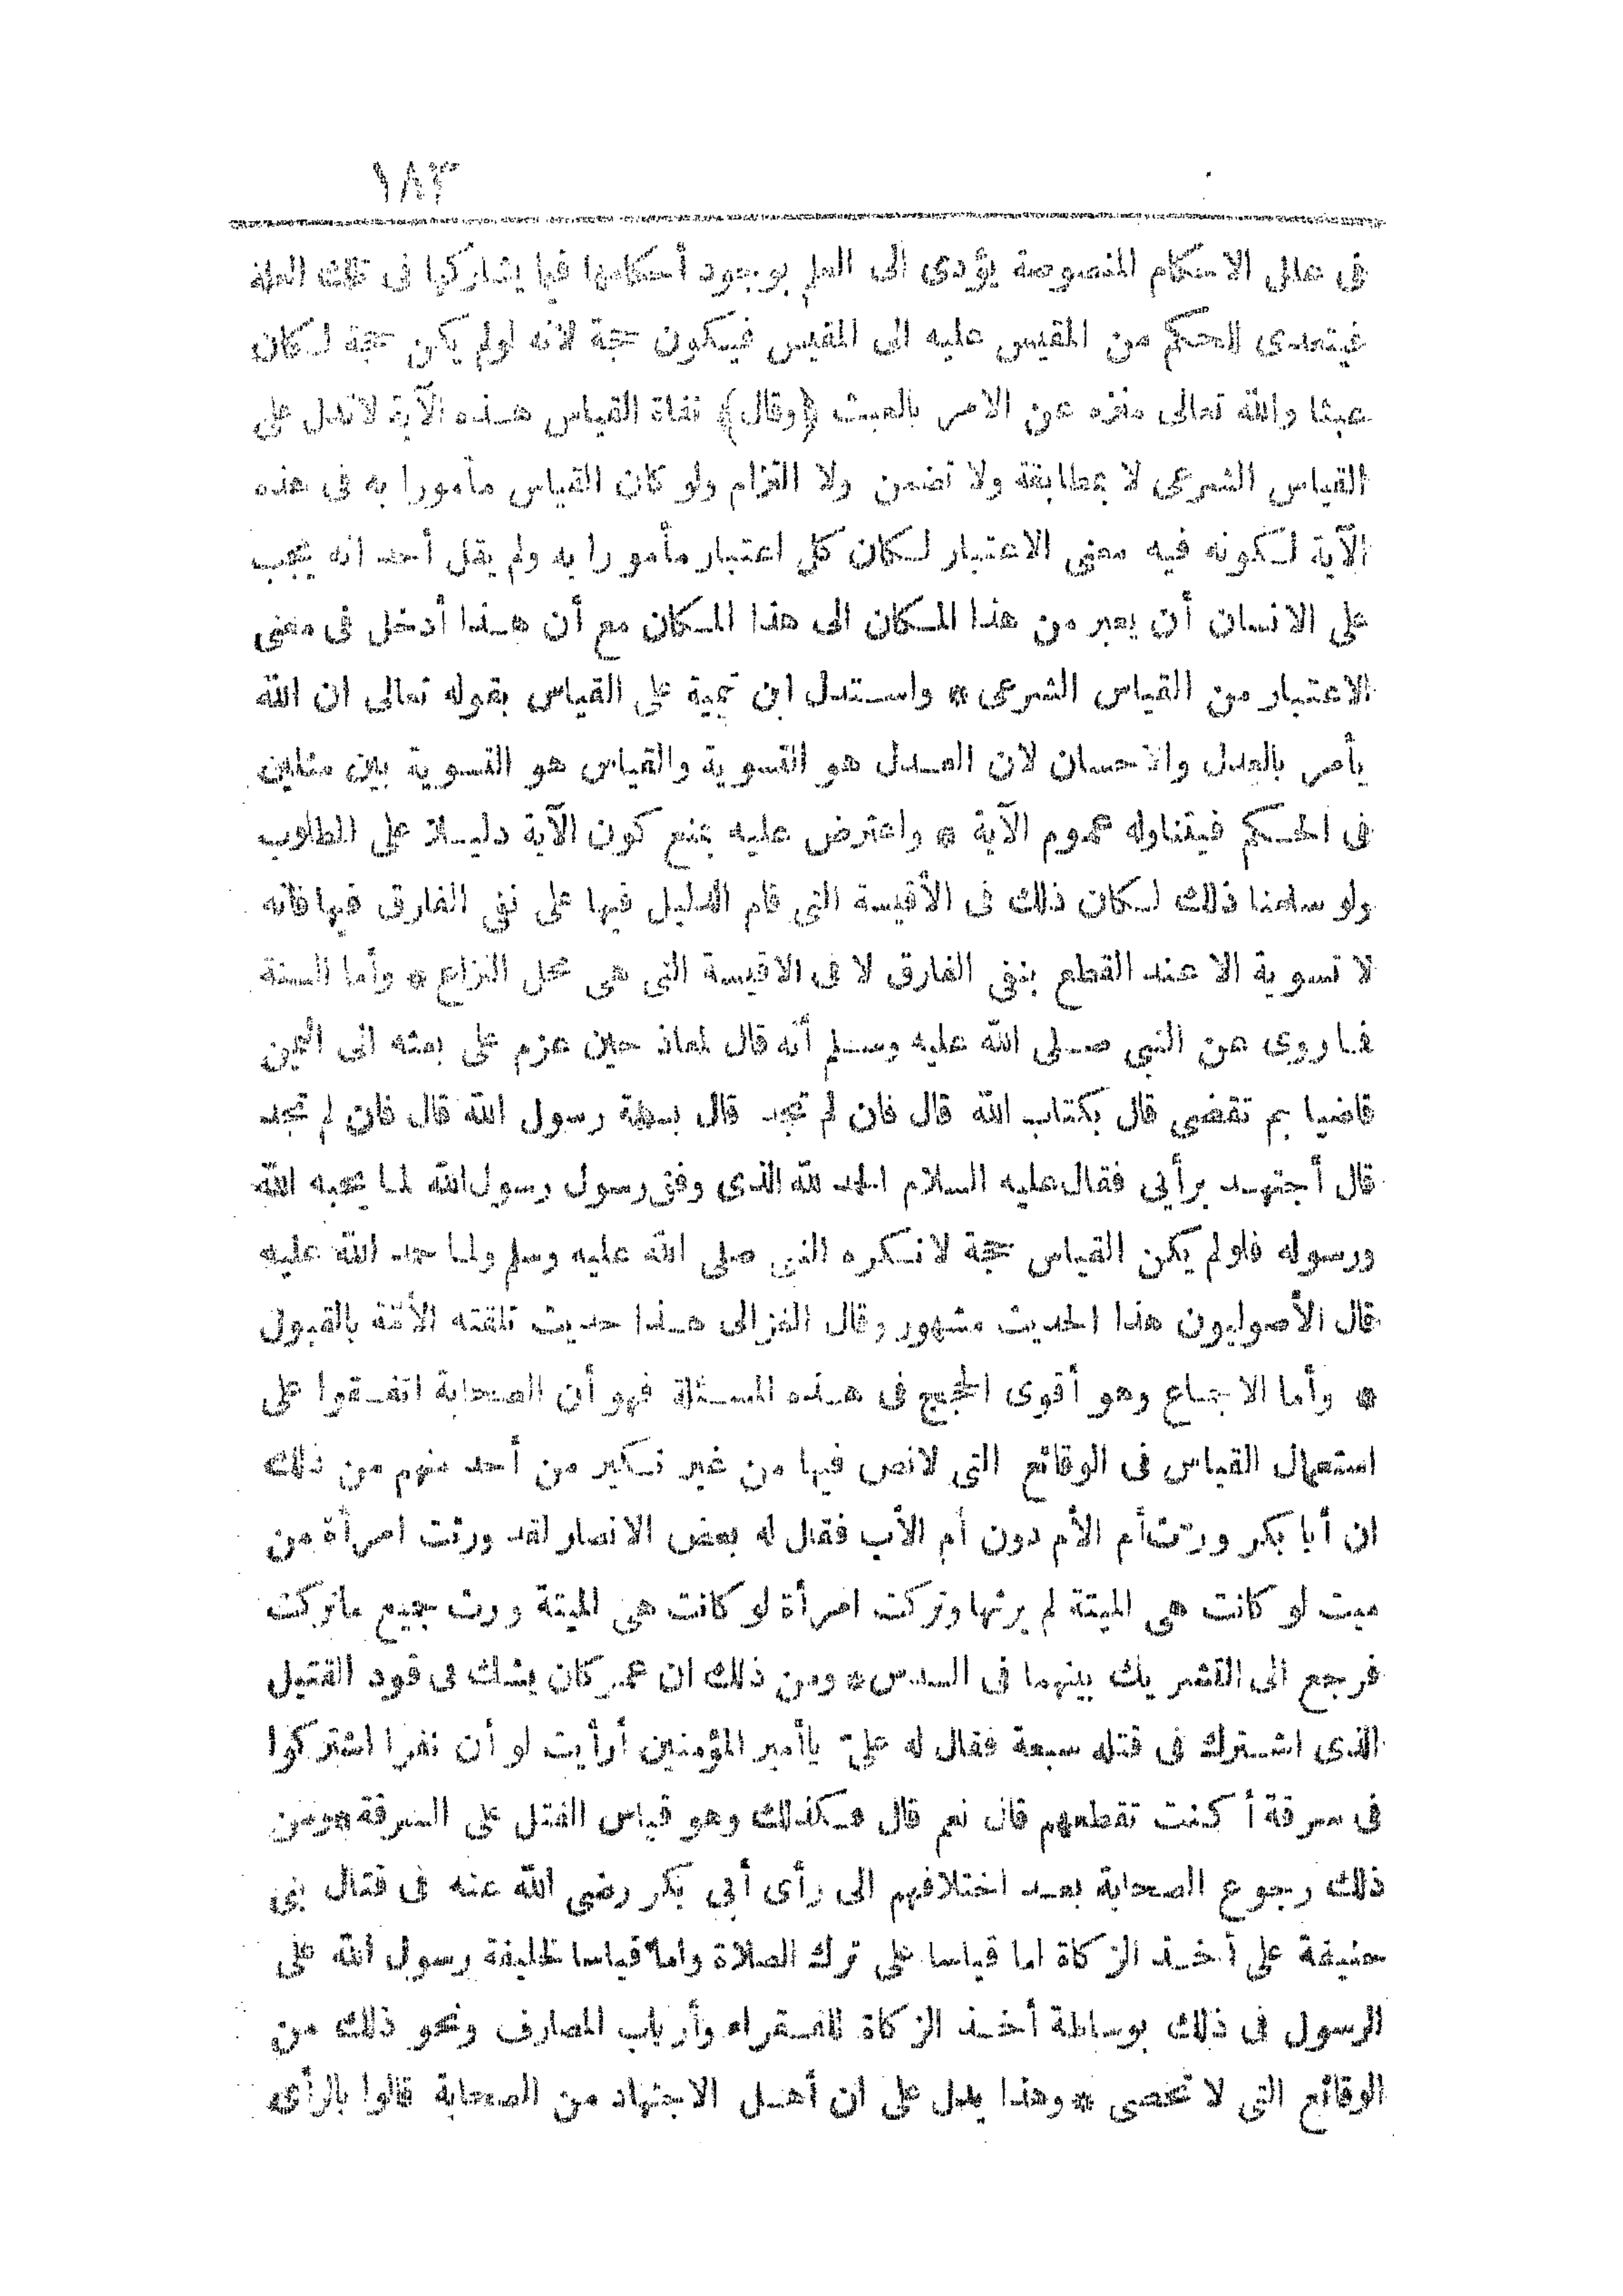 ١٨٣
فى علل الاحكام المنصوصة يؤدى الى العلم بوجود أحكامها فيما يشاركها فى تلك العلة
فيتعدى الحكم من المقيس عليه الى المقيس فيكون حجة لانه لولم يكن حجة لكان
عبثا والله تعالى منزه عن الامر بالعبث (وقال) نفاة القياس هذه الآية لاتدل على
القياس الشرعى لا بمطابقة ولا تضمن ولا التزام ولو كان القياس مأمورا به فى هذه
الآية لكونه فيه معنى الاعتبار لكان كل اعتبار مأمورا به ولم يقل أحد انه يجب
على الانسان أن يعبر من هذا المكان الى هذا المكان مع أن هذا أدخل فى معنى
الاعتبار من القياس الشرعى * واستدل ابن تيمية على القياس بقوله تعالى ان الله
يأمر بالعدل والاحسان لان العدل هو التسوية والقياس هو التسوية بين مثلين
فى الحكم فيتناوله عموم الآية * واعترض عليه بمنع كون الآية دليلا على المطلوب
ولو سلمنا ذلك لكان ذلك فى الأقيسة التى قام الدليل فيها على نفى الفارق فيها فانه
لا تسوية الا عند القطع بنفى الفارق لا فى الاقيسة التى هى محل النزاع * وأما السنة
فما روى عن النبى صلى الله عليه وسلم أنه قال لمعاذ حين عزم على بعثه الى اليمن
قاضيا بم تقضى قال بكتاب الله قال فان لم تجد قال بسنة رسول الله قال فان لم تجد
قال أجتهد برأيى فقال عليه السلام الحمد لله الذى وفق رسول رسول الله لما يحبه الله
ورسوله فلولم يكن القياس حجة لانكره النبى صلى الله عليه وسلم ولما حمد الله عليه
قال الأصوليون هذا الحديث مشهور وقال الغزالى هذا حديث تلقته الأئمة بالقبول
* وأما الاجماع وهو أقوى الحجج فى هذه المسئلة فهو أن الصحابة اتفقوا على
استعمال القياس فى الوقائع التى لانص فيها من غير نكير من أحد منهم من ذلك
ان أبا بكر ورّث أم الأم دون أم الأب فقال له بعض الانصار لقد ورثت امرأة من
ميت لو كانت هى الميتة لم يرثها وتركت امرأة لو كانت هى الميتة ورث جميع ماتركت
فرجع الى التشريك بينهما فى السدس * ومن ذلك ان عمر كان يشك فى قود القتيل
الذى اشترك فى قتله سبعة فقال له علىّ ياأمير المؤمنين أرأيت لو أن نفرا اشتركوا
فى سرقة أكنت تقطعهم قال نعم قال فكذلك وهو قياس القتل على السرقة * ومن
ذلك رجوع الصحابة بعد اختلافهم الى رأى أبى بكر رضى الله عنه فى قتال بنى
حنيفة على أخذ الزكاة اما قياسا على ترك الصلاة واما قياسا لخليفة رسول الله على
الرسول فى ذلك بوساطة أخذ الزكاة للفقراء وأرباب المصارف ونحو ذلك من
الوقائع التى لا تحصى * وهذا يدل على ان أهل الاجتهاد من الصحابة قالوا بالرأى